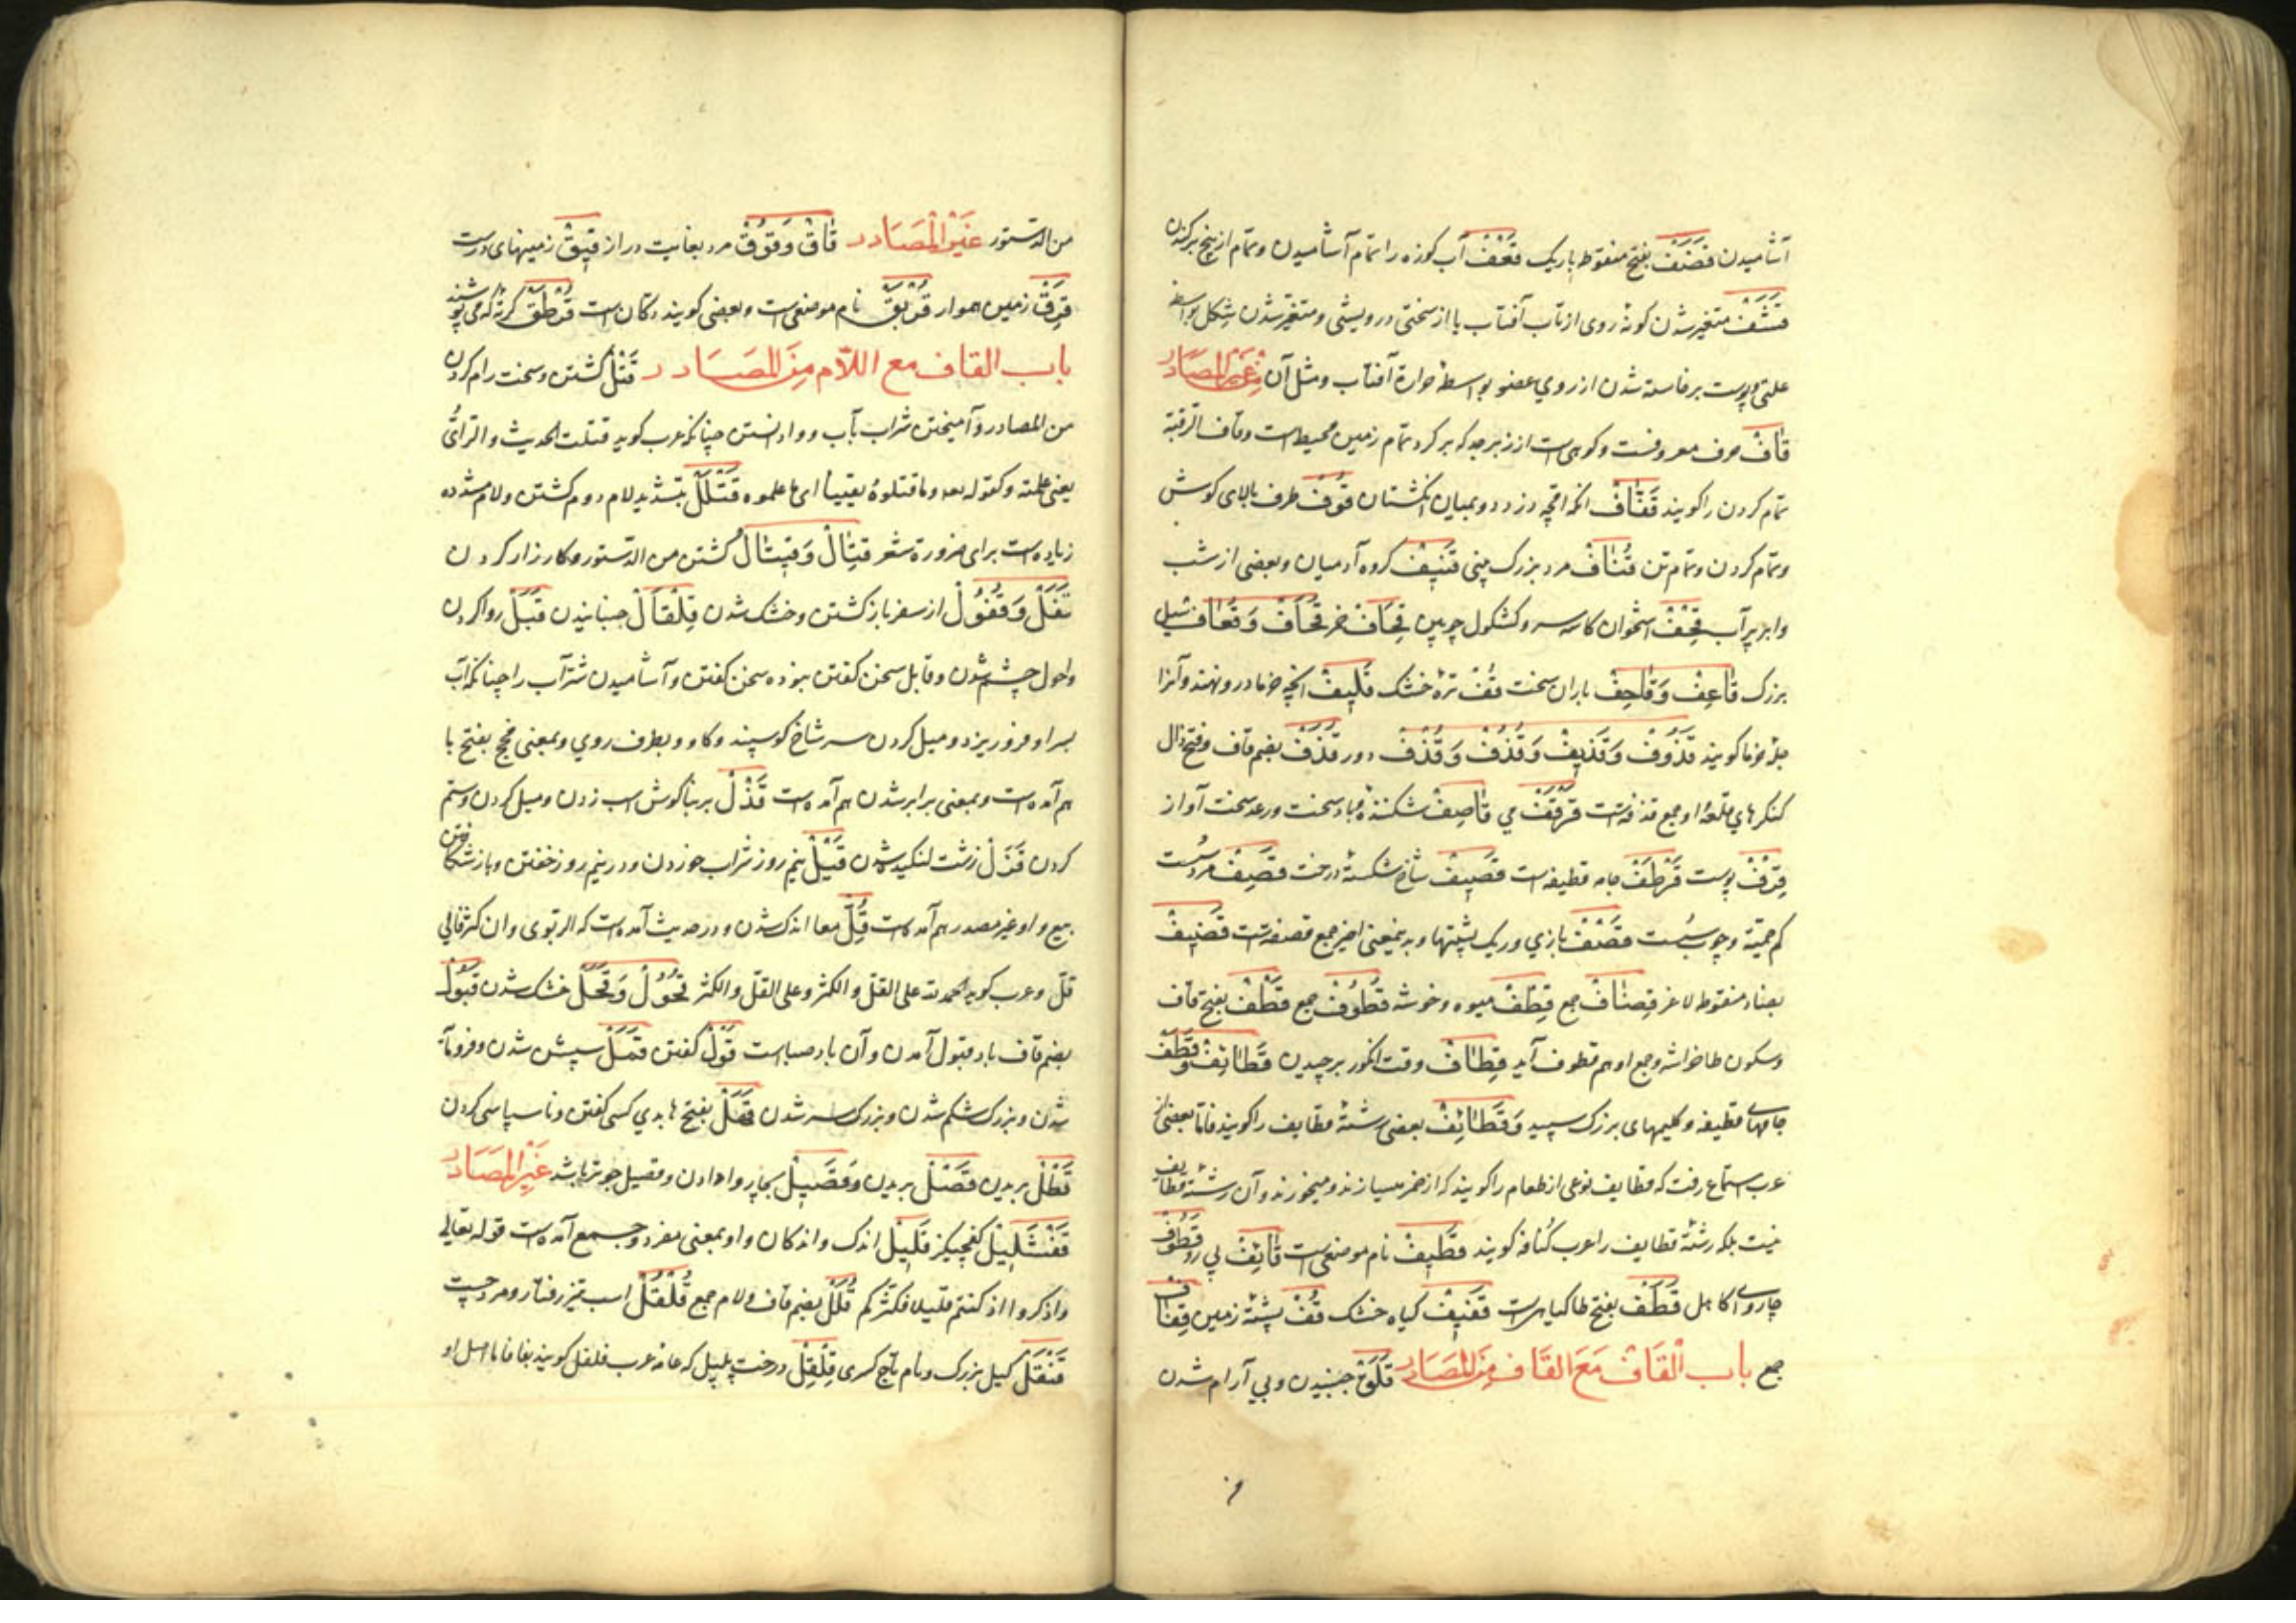 آشامیدن قَضَفْ بفتح منقوط باریک قَعْفْ آب کوزه را تمام آشامیدن و تمام از بیخ برکندن
قَشَفْ متغیر شدن کونهٔ روی از تاب آفتاب یا از سختی درویشی و متغیر شدن شکل بواسطهٔ
علتی و پوست برخاسته شدن از روی عضو بواسطهٔ حرارة آفتاب و مثل آن مِنْ غَیْرِ المَصَادِرِ
قَافْ حرف معروفست و کوهی است از زبرجد که بر کرد تمام زمین محیط است وقاف الرقبة
تمام کردن را کویند قَفَّافْ انکه اقچه دزدد و بمیان انکشتان قُوفْ طرف بالای کوش
و تمام کردن و تمام تن قُنَافْ مرد بزرک بینی قَنِیفْ کروه آدمیان و بعضی از شب
وابر پر آب قِحْفْ استخوان کاسه سر و کشکول چوبین قِحَافْ خر قُحَافْ وَقُعَافْ سیل
بزرک قَاعِفْ وَقَاحِفْ باران سخت قَفْ ترهٔ خشک قَلِیفْ انچه خرما درو نهند و آنرا
جلهٔ خرما کویند قَذُوفْ وَقَذِیفْ وَقُذُفْ وَقَذَفْ دور قُذَفْ بضم قاف و فتح ذال
کنکرهای قلعه او جمع قذفه است قَرْقَفْ می قَاصِفْ شکننده باد سخت ورعد سخت آواز
قِرْفْ پوست قَرْطَفْ جامه قطیفه است قَصِیفْ شاخ شکستهٔ درخت قَصِفْ مرد سست
کم حمیّة و چوب سست قَصْفْ بازی و ریک پشتها و بدینمعنی اخیر جمع قصفه است قَضِیفْ
بضاد منقوط لاغر قِضَافْ جمع قِطْفْ میوه و خوشه قُطُوفْ جمع قَطْفْ بفتح قاف
وسکون طا خراشه و جمع او هم قطوف آید قِطَافْ وقت انکور برچیدن قَطَائِفْ وَقُطُفْ
جامهای قطیفه و کلیمهای بزرک سپید وَقَطَائِفْ بعضی رشتهٔ قطایف را کویند فاما بعضی از
عرب استماع رفت که قطایف نوعی از طعام را کویند که از خمر میسازند و میخورند و آن رشتهٔ قطایف
نیست بلکه رشتهٔ قطایف را عرب کُنافه کویند قَطِیفْ نام موضعی است قَائِفْ پی رو قَطُوفْ
چاروای کاهل قَطَفْ بفتح طا کیاهی است قَفِیفْ کیاه خشک قُفْ پشتهٔ زمین قِفَافْ
جمع باب القَافْ مَعَ القَاف مِنَ المَصَادِر قَلَقْ جنبیدن و بی آرام شدن
من الدستور غَیْرِ المَصَادِر قَاقْ وَقُوقْ مرد بغایت دراز قِیِقْ زمینهای درست
قَرِقْ زمین هموار قُرَیْقْ نام موضعی است و بعضی کویند دکان است قُرْطَقْ کرتهٔ که می پوشند
باب القاف مع اللام مِنَ المَصَادِر قَتْلْ کشتن و سخت رام کردن
من المصادر و آمیختن شراب بآب و وادانستن چنانکه عرب کوید قتلت الحدیث و الرای
یعنی علمته و کقوله تعه وما قتلوه یقینا ای ما علموه قَتْلَلّْ بتشدید لام دوم کشتن و لام مشدده
زیاده است برای ضرورة شعر قِتَالْ وَقِیتَالْ کشتن من الدستور و کارزار کردن
قَفْلْ وَقُفُولْ از سفر باز کشتن و خشک شدن قِلْقَالْ جنبانیدن قَبَلْ روا کردن
واحول چشم شدن و قابل سخن کفتن نبوده سخن کفتن و آشامیدن شتر آب را چنانکه آب
بسر او فرو ریزد و میل کردن سر شاخ کوسپند و کاو و بطرف روی و بمعنی فحج بفتح با
هم آمده است و بمعنی برابر شدن هم آمده است قَذْلْ بر بناکوش اسب زدن و میل کردن و ستم
کردن قَزَلْ زشت لنکیده شدن قَیْلْ نیم روز شراب خوردن و در نیم روز خفتن و باز شکافتن
بیع و او غیر مصدر هم آمده است قُلّْ معا اندک شدن و در حدیث آمده است که الربوی وان کثر فالی
قلّ وعرب کوید الحمد لله علی القلّ والکثر وعلی القلّ والکثر قُحُولْ وَقَحَلْ خشک شدن قَبُولْ
بضم قاف باد قبول آمدن و آن باد صباست قَوْلْ کفتن قَمَلْ سپش شدن و فرومایه
شدن و بزرک شکم شدن و بزرک سر شدن قَهَلْ بفتح ها بدی کسی کفتن و ناسپاسی کردن
قَطْلْ بریدن قَصْلْ بریدن وَقَصِیلْ بچاروا دادن و قصیل جو تر باشد غَیْرِ المَصَادِرِ
قَفْشَلِیلْ کفچلیز قَلِیلْ اندک و اندکان و او بمعنی مفرد و جمع آمده است قوله تعالی
واذکروا اذ کنتم قلیلا فکثرکم قُلُلْ بضم قاف و لام جمع قُلْقُلْ اسب تیز رفتار و مرد چست
قَنْقَلْ کیل بزرک و نام تاج کسری قِلْقِلْ درخت پلپل که عامه عرب فلفل کویند بفا فاما اصل او